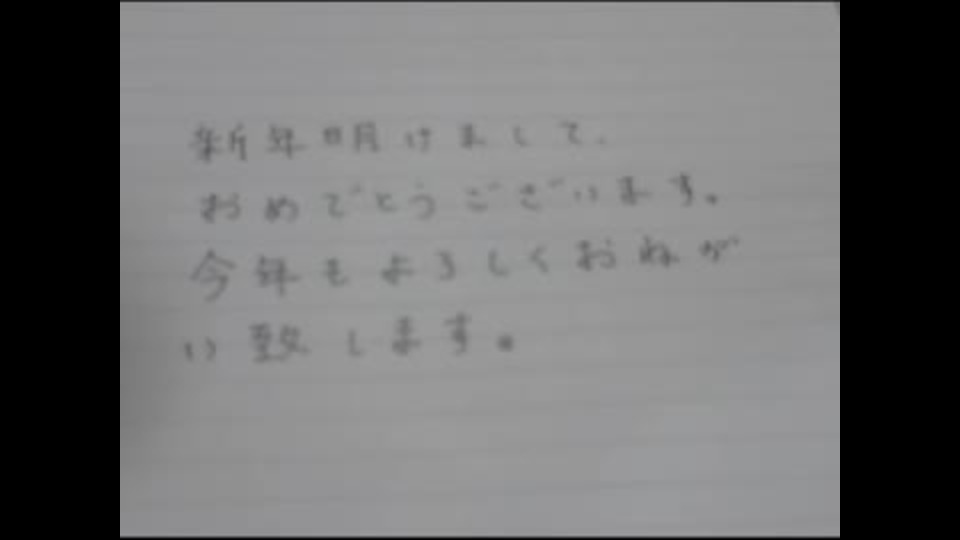 新年明けまして、
おめでとうございます。
今年もよろしくおねが
い致します。